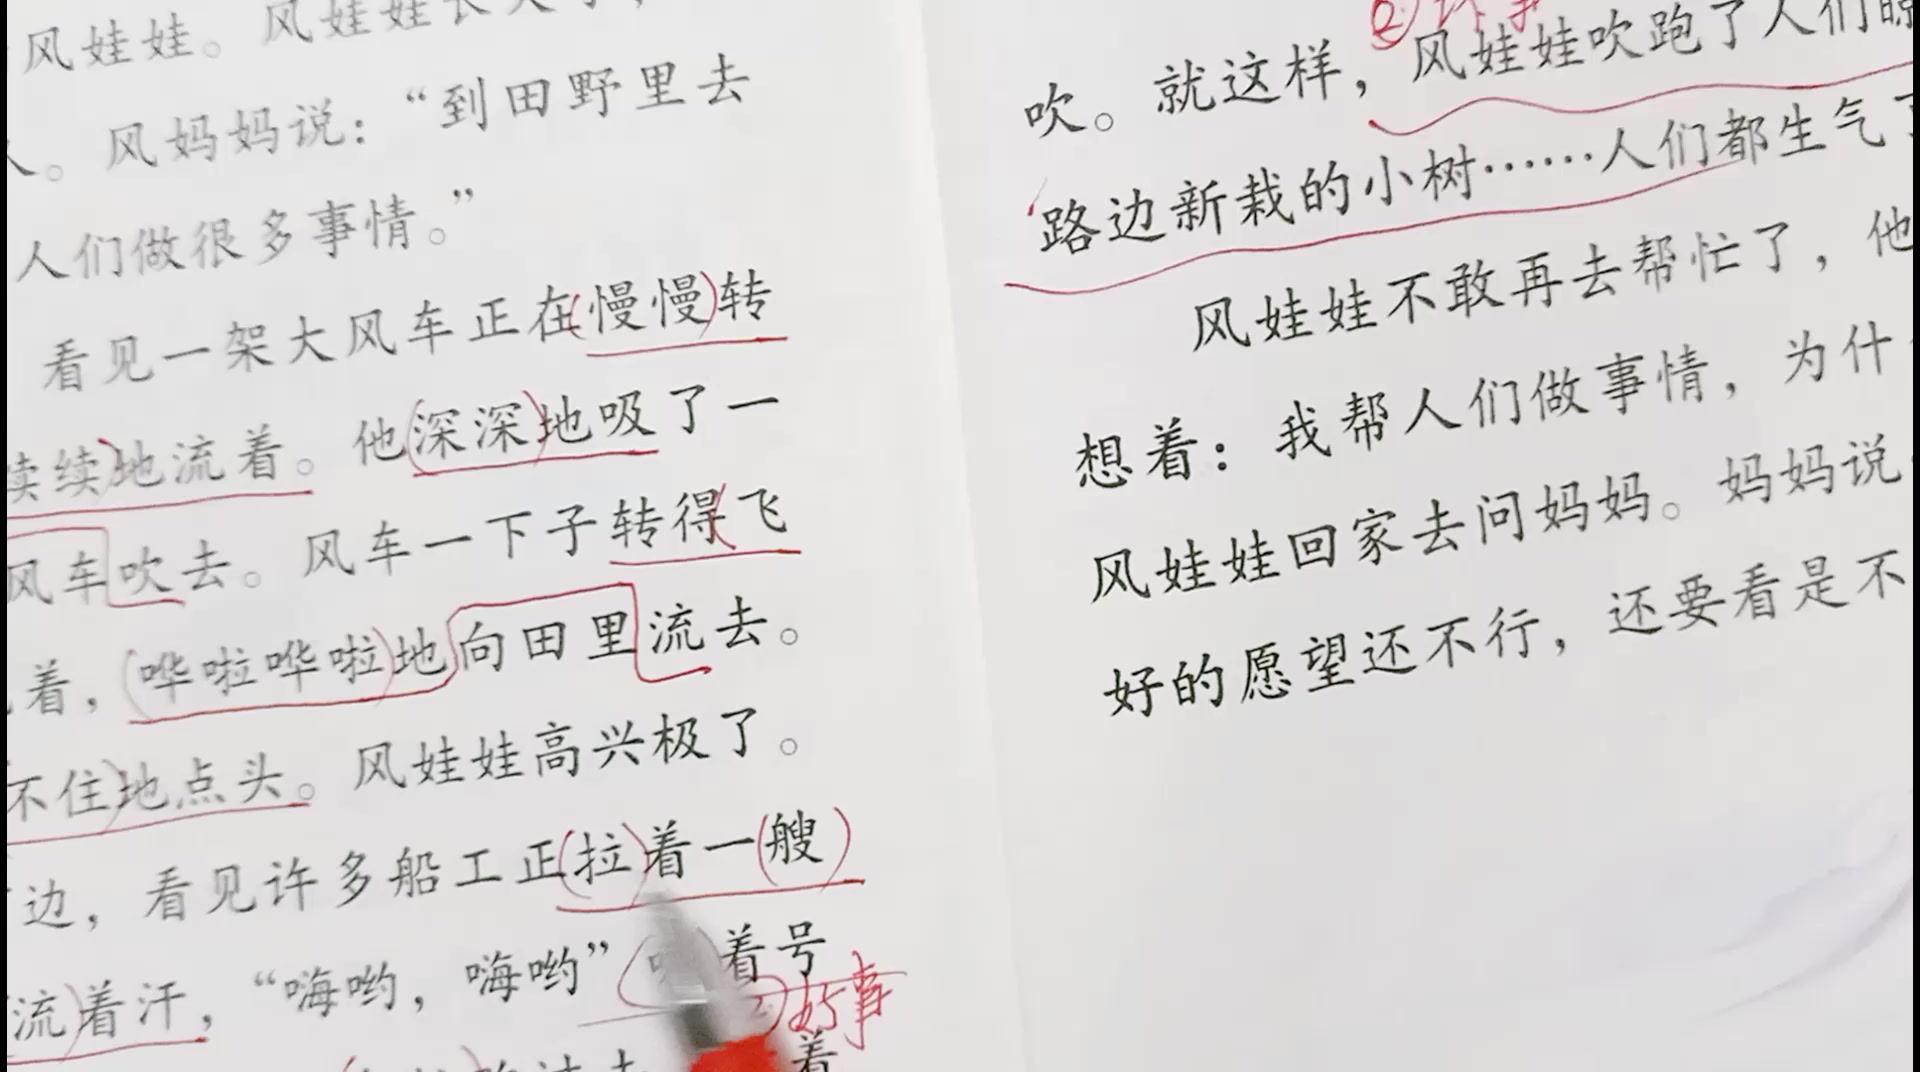 风娃娃。风娃娃长大了，
人。风妈妈说：“到田野里去
人们做很多事情。”
看见一架大风车正在(慢慢)转
续续)地流着。他(深深)地吸了一
风车吹去。风车一下子转得(飞
着，(哗啦哗啦)地向田里流去。
不住)地点头。风娃娃高兴极了。
边，看见许多船工正(拉)着一(艘)
流)着汗，“嗨哟，嗨哟” 着号
好事
着
②
吹。就这样，风娃娃吹跑了人们
路边新栽的小树……人们都生气了
风娃娃不敢再去帮忙了，他
想着：我帮人们做事情，为什
风娃娃回家去问妈妈。妈妈说
好的愿望还不行，还要看是不